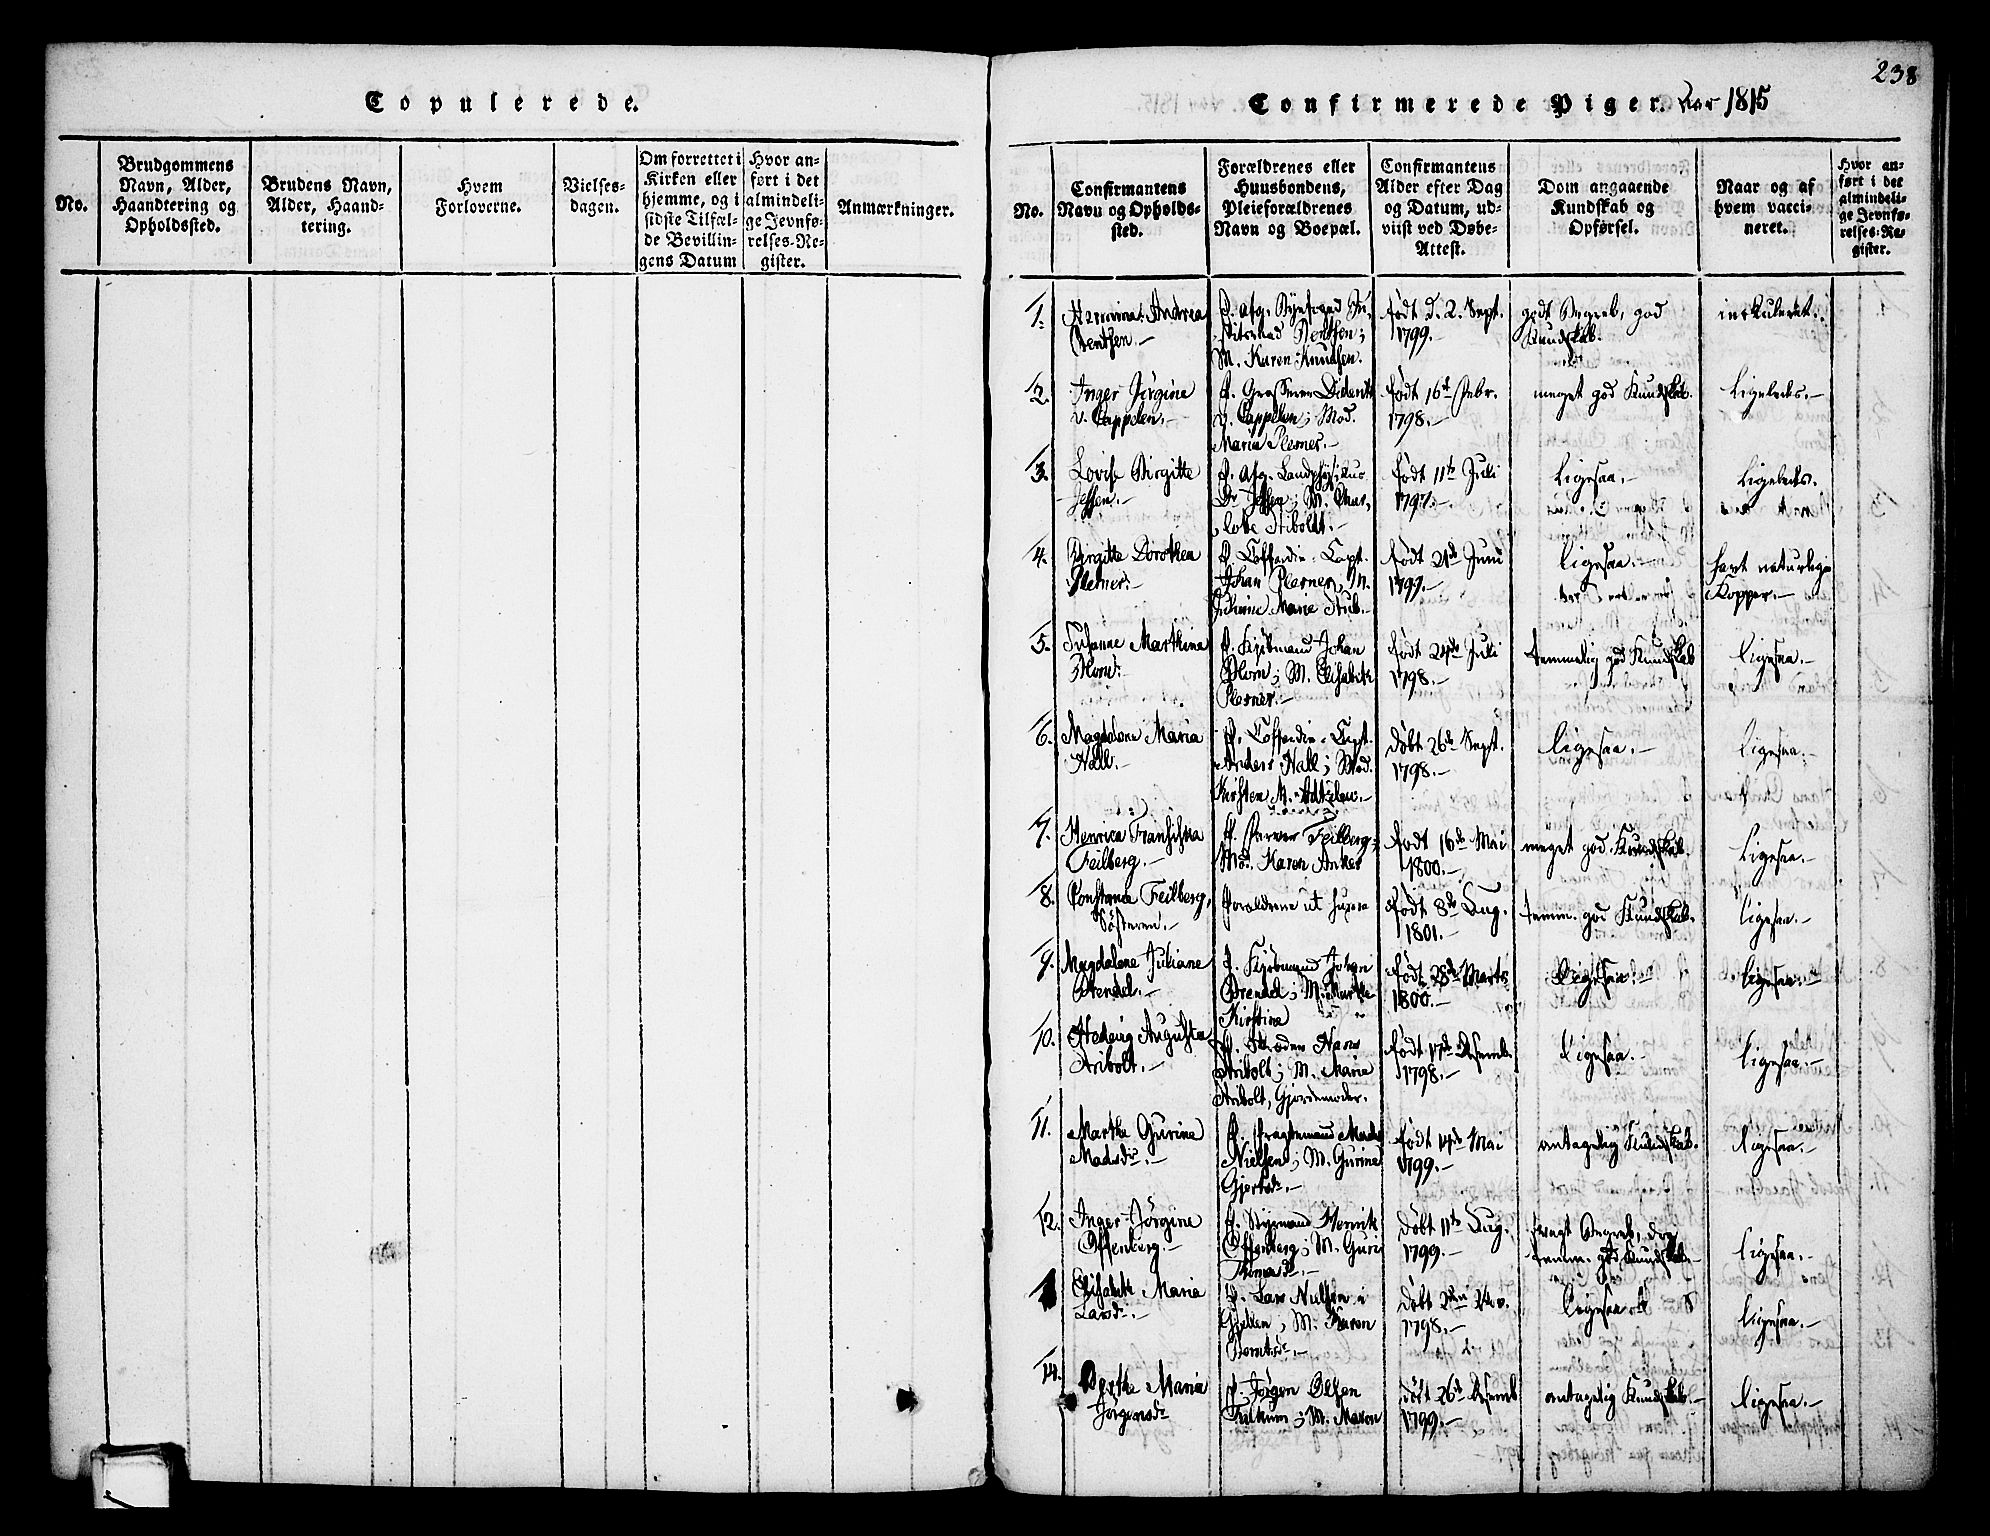 238
Copulerede.
No.
Brudgommens
Navn, Alder,
Haandtering og
Opholdssted.
Brudens Navn,
Alder, Haand-
tering.
Hvem
Forloverne.
Vielses-
dagen.
Om forrettet i
Kirken eller
hjemme, og i
sidste Tilfæl-
de Bevillin-
gens Datum
Hvor an-
ført i det
almindeli-
ge Jevnfø-
relses-Re-
gister.
Anmærkninger.
Confirmerede Piger. Aar 1815
No.
Confirmantens
Navn og Opholds-
sted.
Forældrenes eller
Huusbondens,
Pleieforældrenes
Navn og Boepæl.
Confirmantens
Alder efter Dag
og Datum, ud-
viist ved Døbe-
Attest.
Dom angaaende
Kundskab og
Opførsel.
Naar og af
hvem vacci-
neret.
Hvor an-
ført i det
almindeli-
ge Jevnfø-
relses-Re-
gister.
1.
Andrea
Bentsen.
Bentsen;
M. Karen Knudsen.
født d. 2. Sept.
1799.
godt Begreb, god
Kundskab.
inokuleret.
2.
Inger Jørgine
v. Cappelen.
F. Diderik
v. Cappelen; Mod.
Maria Plesner.
født 16de Febr.
1798.
meget god Kundskab.
Ligeledes.
3.
Lovise Birgitte
Jessen.
F. Afg. Landphysikus
Dr Jessen; M. Char-
lotte Stiboldt.
født 11te Juli
1797.
Ligesaa.
Ligeledes.
4.
Birgitte Dorothea
Plesner.
F. Coffardie-Capt.
Johan Plesner, M.
Maria Stub.
født 21de Juni
1797.
ligesaa.
havt naturlige
Kopper.
5.
Susanne Marthine
Blom.
F. Kjøbmand Johan
Blom; M. Elisabeth
Plesner.
født 24de Juli
1798.
temmelig god Kundskab
ligesaa.
6.
Magdalene Maria
Hall.
F. Coffardie-Capt.
Anders Hall; Mod.
Kirsten M.
døbt 26de Sept.
1798.
ligesaa.
ligesaa.
7.
Henrica Fransiska
Feilberg.
F. Feilberg;
Mod. Karen Anker
født 16de Mai
1800.
meget god Kundskab.
Ligesaa.
8.
Constance Feilberg,
Søsteren.
Forældrene ut supra
født 8de Aug.
1801.
temm. god Kundskab.
ligesaa.
9.
Magdalene Juliane
F. Kjøbmand Johan
M. Marthe
Kirstine
født 28de Marts
1800.
Ligesaa.
ligesaa.
10.
Hedevig Augusta
Stibolt.
Hans
Stibolt; M. Maria
Stibolt, Gjordemoder.
født 17de Desemb.
1798.
ligesaa.
ligesaa.
11.
Marthe Gurine
Madsdr.
F. Fragtemand Mads
Nielsen; M. Gurine
Gjertsdr.
født 14de Mai
1799.
antagelig Kundskab.
ligesaa.
12.
Inger Jørgine
Offenberg.
F. Styrmand Henrik
Offenberg; M. Guri
Thomasdr.
døbt 11te Aug.
1799.
svagt Begreb, dog
temm. god Kundskab.
ligesaa.
Elisabeth Maria
Larsdr.
F. Lars Nielsen i
M. Karen
døbt
1798.
ligesaa
ligesaa.
14.
Berthe Maria
Jørgensdr
F. Jørgen Olsen
Falkum; M. Maren
døbt 26de Desemb
1799.
antagelig Kundskab.
ligesaa.